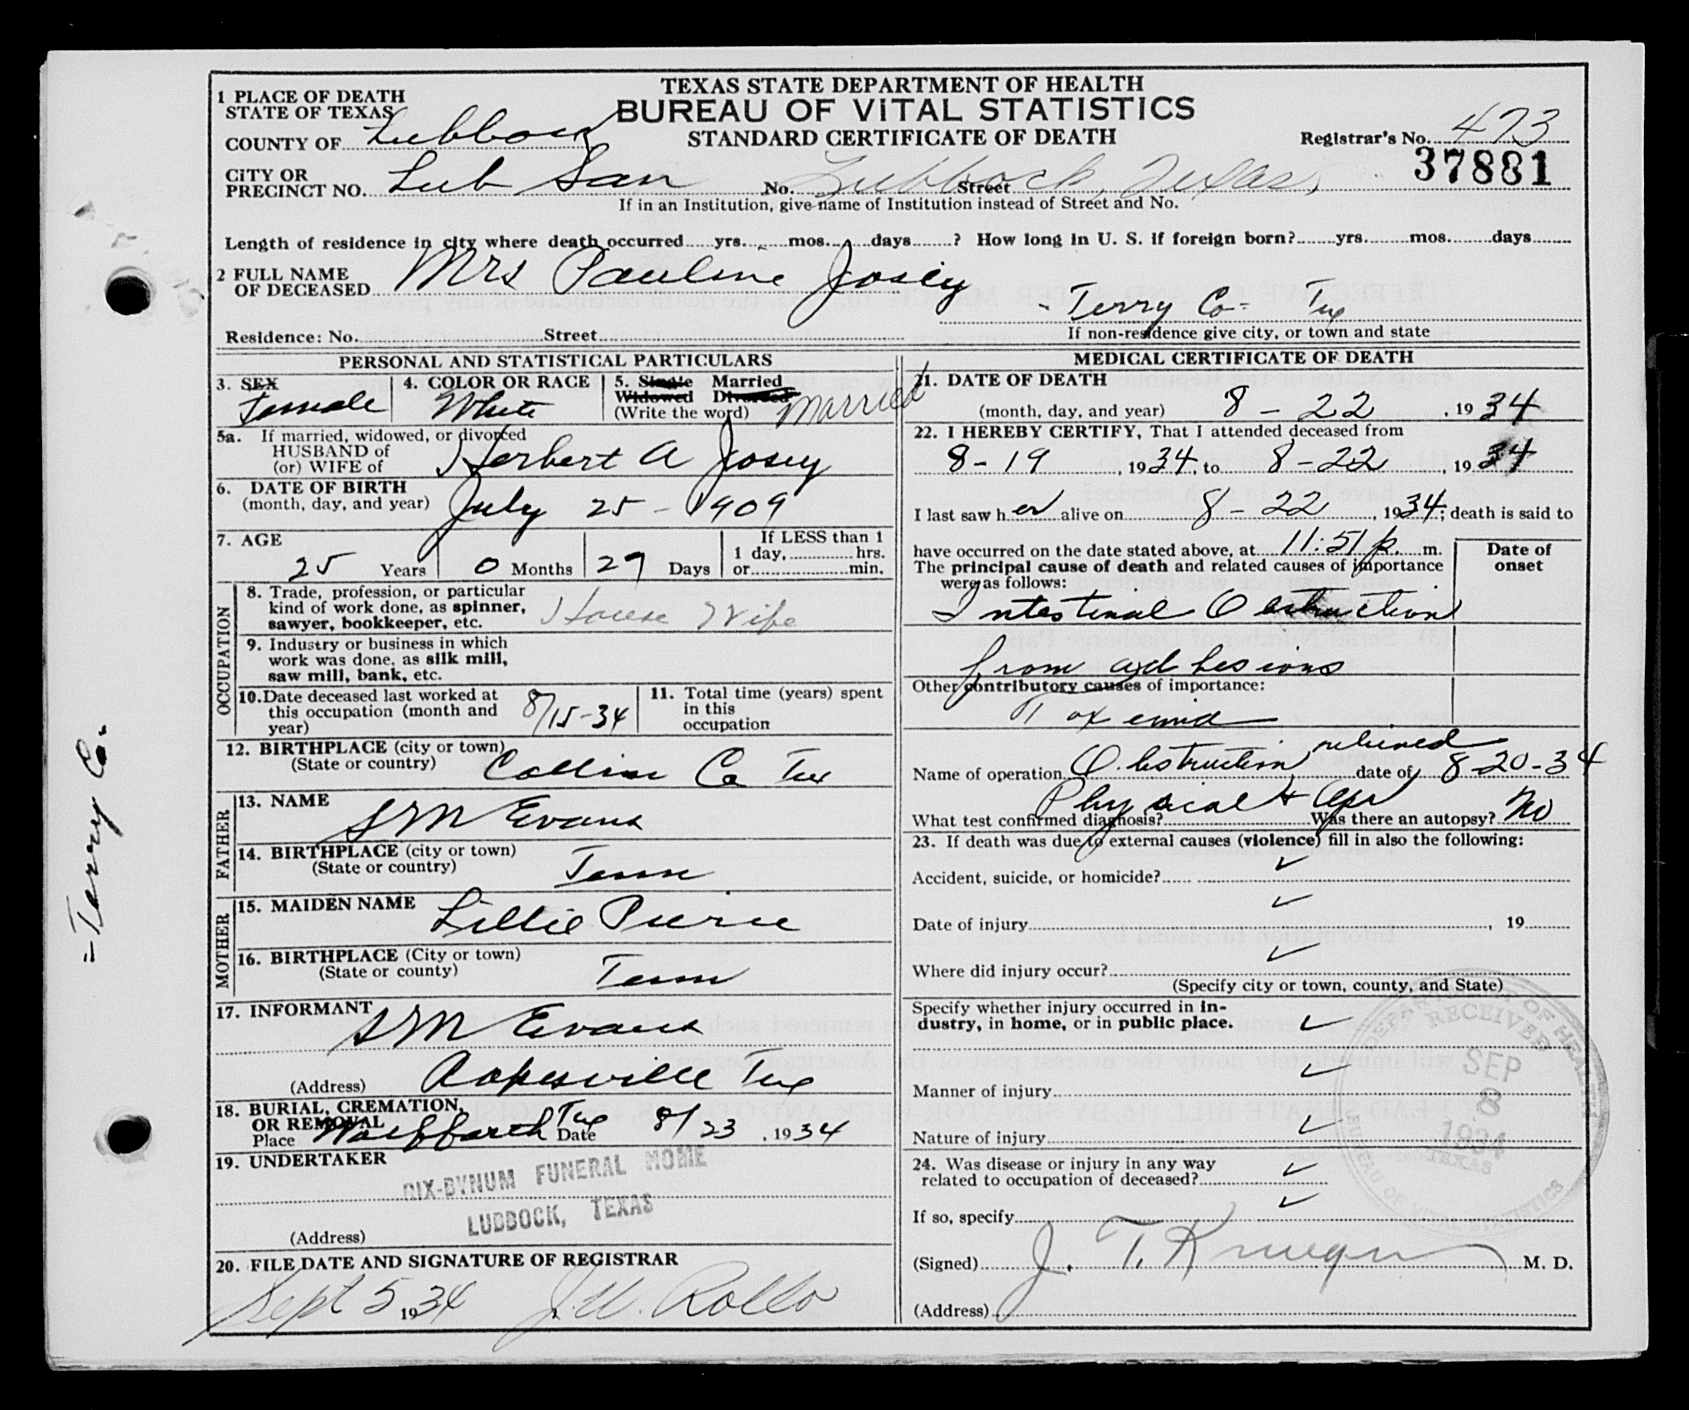 TEXAS STATE DEPARTMENT OF HEALTH
BUREAU OF VITAL STATISTICS
STANDARD CERTIFICATE OF DEATH
1 PLACE OF DEATH
STATE OF TEXAS
COUNTY OF Lubbock
Registrar's No. 473
37881
CITY OR
PRECINCT NO. Lub San No. Lubbock, Texas, Street
If in an Institution, give name of Institution instead of Street and No.
Length of residence in city where death occurred yrs. mos. days ? How long in U. S. if foreign born? yrs. mos. days
2 FULL NAME
OF DECEASED Mrs Pauline Josey
- Terry Co - Tex
Residence: No. Street
If non-residence give city, or town and state
PERSONAL AND STATISTICAL PARTICULARS
3. SEX
Female
4. COLOR OR RACE
White
5. Single Married
Widowed Divorced
(Write the word) Married
5a. If married, widowed, or divorced
HUSBAND of
(or) WIFE of Herbert A Josey
6. DATE OF BIRTH
(month, day, and year) July 25 - 1909
7. AGE
25 Years 0 Months 27 Days
If LESS than 1
1 day, hrs.
or min.
OCCUPATION
8. Trade, profession, or particular
kind of work done, as spinner,
sawyer, bookkeeper, etc. House Wife
9. Industry or business in which
work was done, as silk mill,
saw mill, bank, etc.
10. Date deceased last worked at
this occupation (month and
year) 8/15-34
11. Total time (years) spent
in this
occupation
12. BIRTHPLACE (city or town)
(State or country) Collin Co Tex
FATHER
13. NAME
S M Evans
14. BIRTHPLACE (city or town)
(State or country) Tenn
MOTHER
15. MAIDEN NAME Lillie Pierce
16. BIRTHPLACE (City or town)
(State or county) Tenn
17. INFORMANT
S M Evans
(Address) Ropesville Tex
18. BURIAL, CREMATION,
OR REMOVAL
Place Wolfforth Tex Date 8/23, 1934
19. UNDERTAKER
RIX-BYNUM FUNERAL HOME
LUBBOCK, TEXAS
(Address)
20. FILE DATE AND SIGNATURE OF REGISTRAR
Sept 5 1934 J.W. Rollo
MEDICAL CERTIFICATE OF DEATH
21. DATE OF DEATH
(month, day, and year) 8-22, 1934
22. I HEREBY CERTIFY, That I attended deceased from
8-19, 1934, to 8-22, 1934
I last saw her alive on 8-22, 1934; death is said to
have occurred on the date stated above, at 11:51 p. m.
The principal cause of death and related causes of importance
were as follows:
Date of
onset
Intestinal Obstruction
from adhesions
Other contributory causes of importance:
Toxemia
Name of operation Obstruction relieved date of 8-20-34
What test confirmed diagnosis? Physical + Opr Was there an autopsy? No
23. If death was due to external causes (violence) fill in also the following:
Accident, suicide, or homicide? ✓
Date of injury ✓, 19
Where did injury occur? ✓
(Specify city or town, county, and State)
Specify whether injury occurred in in-
dustry, in home, or in public place. ✓
Manner of injury ✓
Nature of injury ✓
24. Was disease or injury in any way
related to occupation of deceased? ✓
If so, specify ✓
(Signed) J. T. Krueger M. D.
(Address)
RECEIVED
SEP
8
1934
TEXAS
BUREAU OF VITAL STATISTICS
= Terry Co.